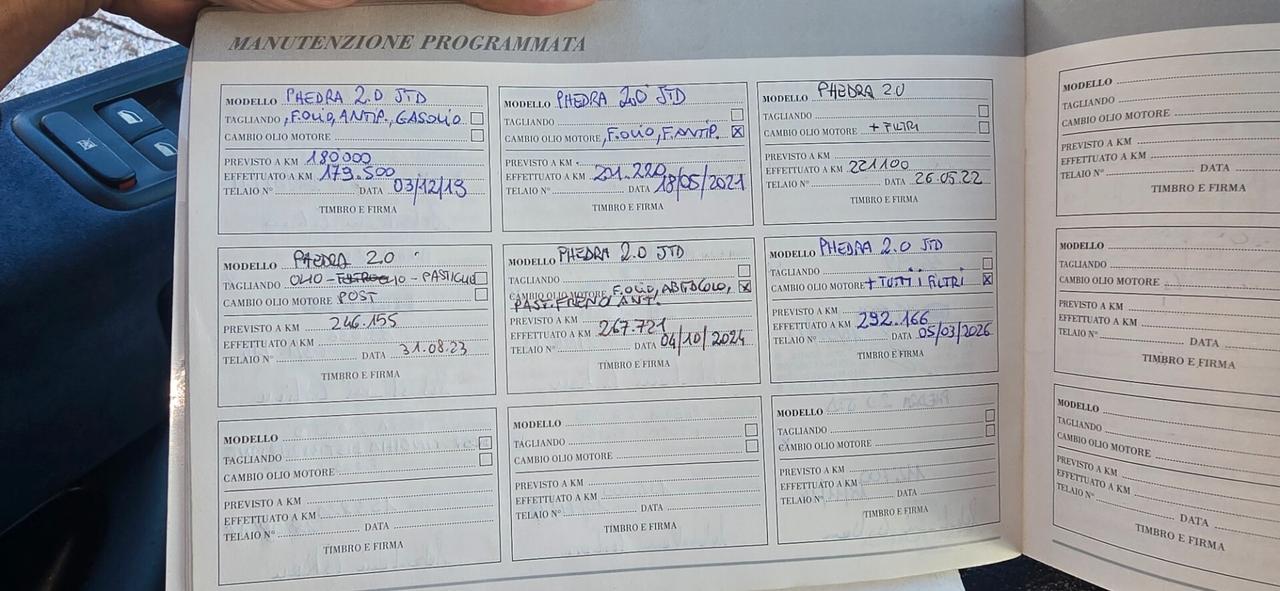 MANUTENZIONE PROGRAMMATA
MODELLO PHEDRA 2.0 JTD
TAGLIANDO , F.OLIO, ANTIP., GASOLIO
CAMBIO OLIO MOTORE
PREVISTO A KM 180000
EFFETTUATO A KM 179.500
TELAIO N° DATA 03/12/19
TIMBRO E FIRMA
MODELLO PHEDRA 2.0 JTD
TAGLIANDO
CAMBIO OLIO MOTORE, F.OLIO, F.ANTIP. X
PREVISTO A KM
EFFETTUATO A KM 201.220
TELAIO N° DATA 18/05/2021
TIMBRO E FIRMA
MODELLO PHEDRA 2.0
TAGLIANDO
CAMBIO OLIO MOTORE + FILTRI
PREVISTO A KM
EFFETTUATO A KM 221100
TELAIO N° DATA 26.05.22
TIMBRO E FIRMA
MODELLO PHEDRA 2.0
TAGLIANDO OLIO - - PASTIGLIE
CAMBIO OLIO MOTORE POST
PREVISTO A KM 246.155
EFFETTUATO A KM
TELAIO N° DATA 31.08.23
TIMBRO E FIRMA
MODELLO PHEDRA 2.0 JTD
TAGLIANDO
CAMBIO OLIO MOTORE F.OLIO, ABITACOLO, X
PAST. FRENO ANT.
PREVISTO A KM
EFFETTUATO A KM 267.721
TELAIO N° DATA 04/10/2024
TIMBRO E FIRMA
MODELLO PHEDRA 2.0 JTD
TAGLIANDO
CAMBIO OLIO MOTORE + TUTTI i FILTRI X
PREVISTO A KM
EFFETTUATO A KM 292.166
TELAIO N° DATA 05/03/2026
TIMBRO E FIRMA
MODELLO
TAGLIANDO
CAMBIO OLIO MOTORE
PREVISTO A KM
EFFETTUATO A KM
TELAIO N° DATA
TIMBRO E FIRMA
MODELLO
TAGLIANDO
CAMBIO OLIO MOTORE
PREVISTO A KM
EFFETTUATO A KM
TELAIO N° DATA
TIMBRO E FIRMA
MODELLO
TAGLIANDO
CAMBIO OLIO MOTORE
PREVISTO A KM
EFFETTUATO A KM
TELAIO N° DATA
TIMBRO E FIRMA
MODELLO
TAGLIANDO
CAMBIO OLIO MOTORE
PREVISTO A KM
EFFETTUATO A KM
TELAIO N° DATA
TIMBRO E FIRMA
MODELLO
TAGLIANDO
CAMBIO OLIO MOTORE
PREVISTO A KM
EFFETTUATO A KM
TELAIO N° DATA
TIMBRO E FIRMA
MODELLO
TAGLIANDO
CAMBIO OLIO MOTORE
PREVISTO A KM
EFFETTUATO A KM
TELAIO N° DATA
TIMBRO E FIRMA